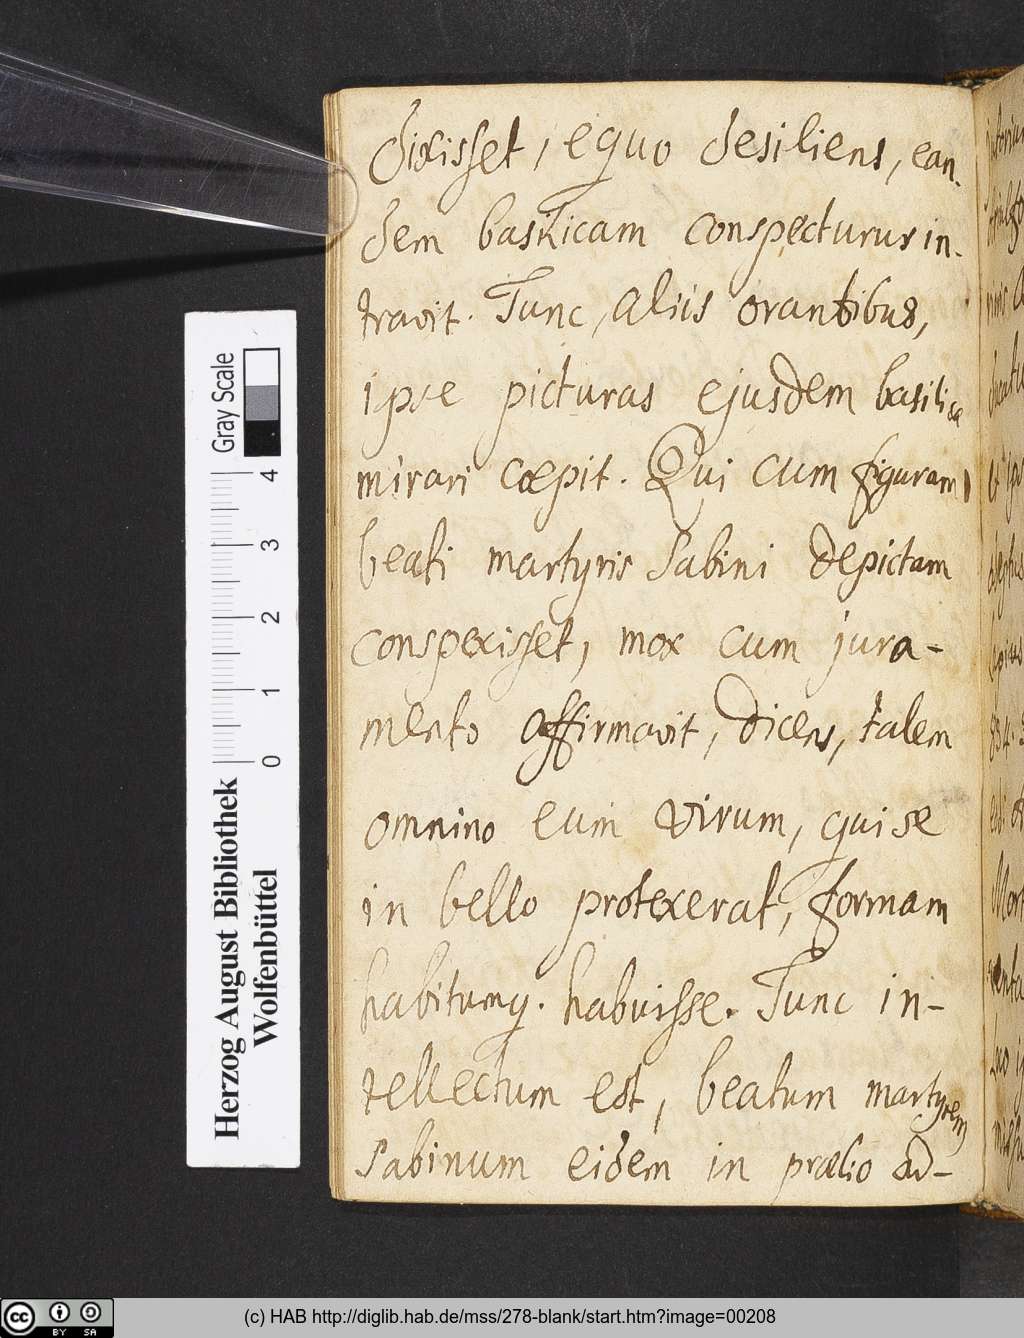 dixisset, equo desiliens, ean-
dem basilicam conspecturus in-
travit. Tunc, aliis orantibus,
ipse picturas ejusdem basilicæ
mirari cœpit. Qui cum figuram
beati martyris Sabini depictam
conspexisset, mox cum jura-
mento affirmavit, dicens, talem
omnino eum virum, qui se
in bello protexerat, formam
habitumq. habuisse. Tunc in-
tellectum est, beatum martyrem
Sabinum eidem in prælio ad-
Gray Scale
0 1 2 3 4
Herzog August Bibliothek
Wolfenbüttel
cc BY SA
(c) HAB http://diglib.hab.de/mss/278-blank/start.htm?image=00208